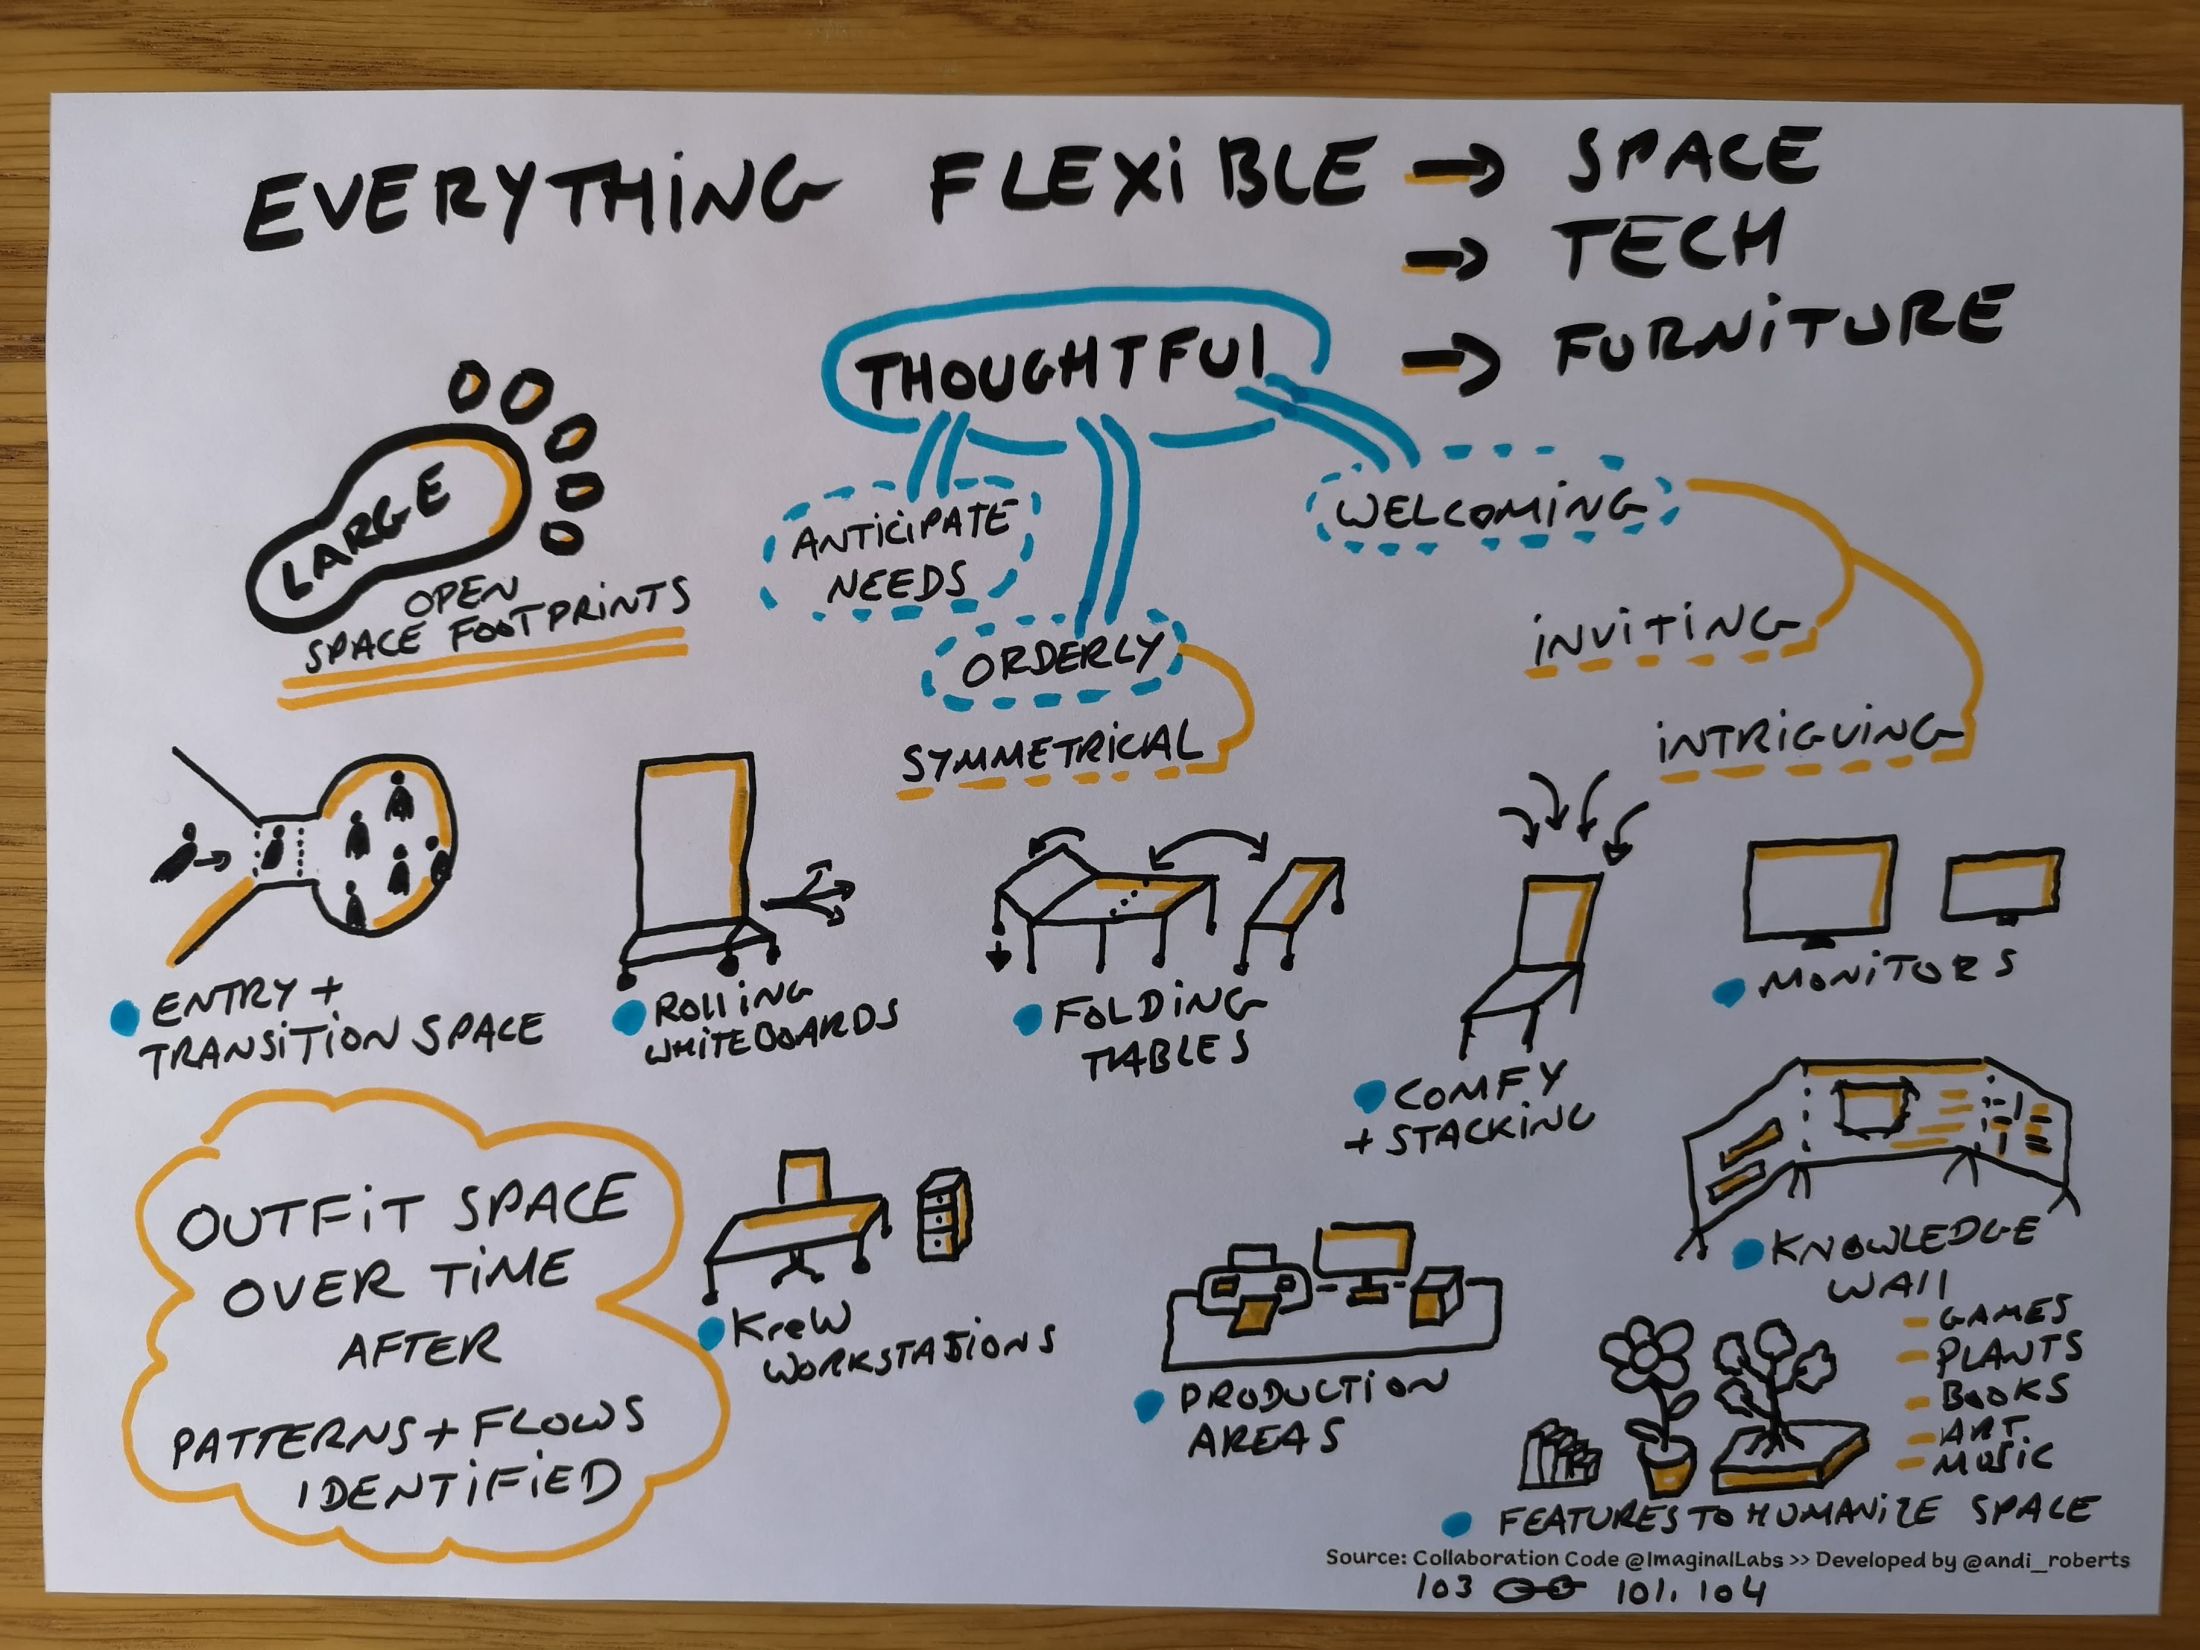 EVERYTHING FLEXIBLE → SPACE
→ TECH
→ FURNITURE
THOUGHTFUl
LARGE
OPEN
SPACE FOOTPRINTS
ANTICIPATE
NEEDS
ORDERLY
SYMMETRICAL
WELCOMING
INVITING
INTRIGUING
ENTRY +
TRANSITION SPACE
ROllING
WHITEBOARDS
FOLDING
TABLES
COMFY
+ STACKING
MONITORS
OUTFIT SPACE
OVER TIME
AFTER
PATTERNS + FLOWS
IDENTIFIED
KreW
WORKSTATIONS
PRODUCTION
AREAS
KNOWLEDGE
WAll
- GAMES
- PLANTS
- BOOKS
- ART
- MUSIC
FEATURES TO HUMANIZE SPACE
Source: Collaboration Code @ImaginalLabs >> Developed by @andi_roberts
103 101, 104